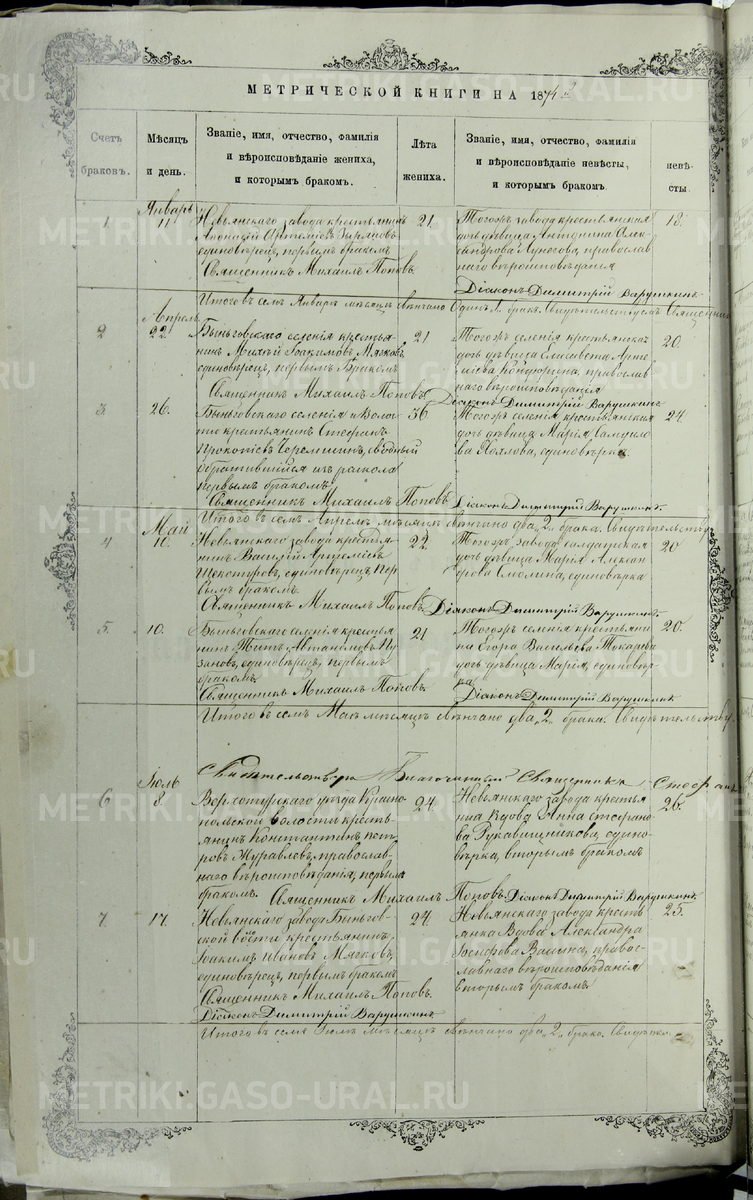 МЕТРИЧЕСКОЙ КНИГИ НА 18
Счетъ браковъ.
Мѣсяцъ и день.
Званіе, имя, отчество, фамилія
и вѣроисповѣданіе жениха,
и которымъ бракомъ.
Лѣта жениха.
Званіе, имя, отчество, фамилія
и вѣроисповѣданіе невѣсты,
и которымъ бракомъ
невѣ-
сты.
Январь
1
11
Невьянскаго завода крестьянинъ
Артеміевъ
единовѣрецъ, первымъ бракомъ
Священникъ Михаилъ Поповъ
21.
Тогожъ завода крестьянская
дочь дѣвица Антонина Алек-
сандрова православ-
наго вѣроисповѣданія
18.
Діаконъ Димитрій Варушкинъ
Итого въ семъ Январѣ мѣсяцѣ вѣнчано Одинъ 1. бракъ. Свидѣтельствуемъ Священник
Апрѣль
2
22.
Быньговскаго селенія крестья-
нинъ Михѣй Іоакимовъ Мягков,
единовѣрецъ, первымъ бракомъ
Священникъ Михаилъ Поповъ
21
Тогожъ селенія крестьянска
дочь дѣвица Елисавета Арте-
міева православ-
наго вѣроисповѣданія
20.
Діаконъ Димитрій Варушкинъ
3.
26.
Быньговскаго селенія и Воло-
сти крестьянинъ Стефанъ
Прокопіевъ сводный
обратившійся изъ раскола
первымъ бракомъ
Священникъ Михаилъ Поповъ
36.
Тогожъ селенія крестьянская
дочь дѣвица Марія Самуило-
ва единовѣрка.
24.
Діаконъ Димитрій Варушкинъ
Итого въ семъ Апрѣлѣ мѣсяцѣ вѣнчано два „2„ брака. Свидѣтельству
Май
4
Невьянскаго завода крестья-
нинъ Василій Артеміевъ
единовѣрецъ, пер-
вымъ бракомъ.
Священникъ Михаилъ Поповъ
22.
Тогожъ завода солдатская
дочь дѣвица Марія Алексан-
дрова Смолина, единовѣрка
20
Діаконъ Димитрій Варушкинъ
5.
10.
Быньговскаго селенія крестья-
нинъ Титъ Автономовъ Пу-
зановъ, единовѣрецъ, первымъ
бракомъ
Священникъ Михаилъ Поповъ.
21
Тогожъ селенія крестьяни-
на Егора Васильева Токарева
дочь дѣвица Марія, единовѣр-
ка.
20.
Діаконъ Димитрій Варушкинъ
Итого въ семъ Маѣ мѣсяцѣ вѣнчано два „2„ брака. Свидѣтельству
Благочинный Священникъ Стефанъ
Іюль
6
8.
Верхотурскаго уѣзда
волости кресть-
янинъ Константинъ Пет-
ровъ Журавлевъ, православ-
наго вѣроисповѣданія, первым
бракомъ. Священникъ Михаилъ Поповъ.
24.
Невьянскаго завода крестья-
нка Вдова Анна Стефано-
ва Рукавишникова, едино-
вѣрка, вторымъ бракомъ
26.
Діаконъ Димитрій Варушкинъ
7.
17.
Невьянскаго завода Быньгов-
ской волости крестьянинъ
Іоакимъ Ивановъ Мягковъ,
единовѣрецъ, первымъ бракомъ
Священникъ Михаилъ Поповъ.
Діаконъ Димитрій Варушкинъ
24.
Невьянскаго завода кресть-
янка Вдова Александра
Іосифова православнаго вѣроисповѣданія
вторымъ бракомъ
25.
Итого въ семъ Іюлѣ мѣсяцѣ вѣнчано два „2„ брака.
METRIKI.GASO-URAL.RU